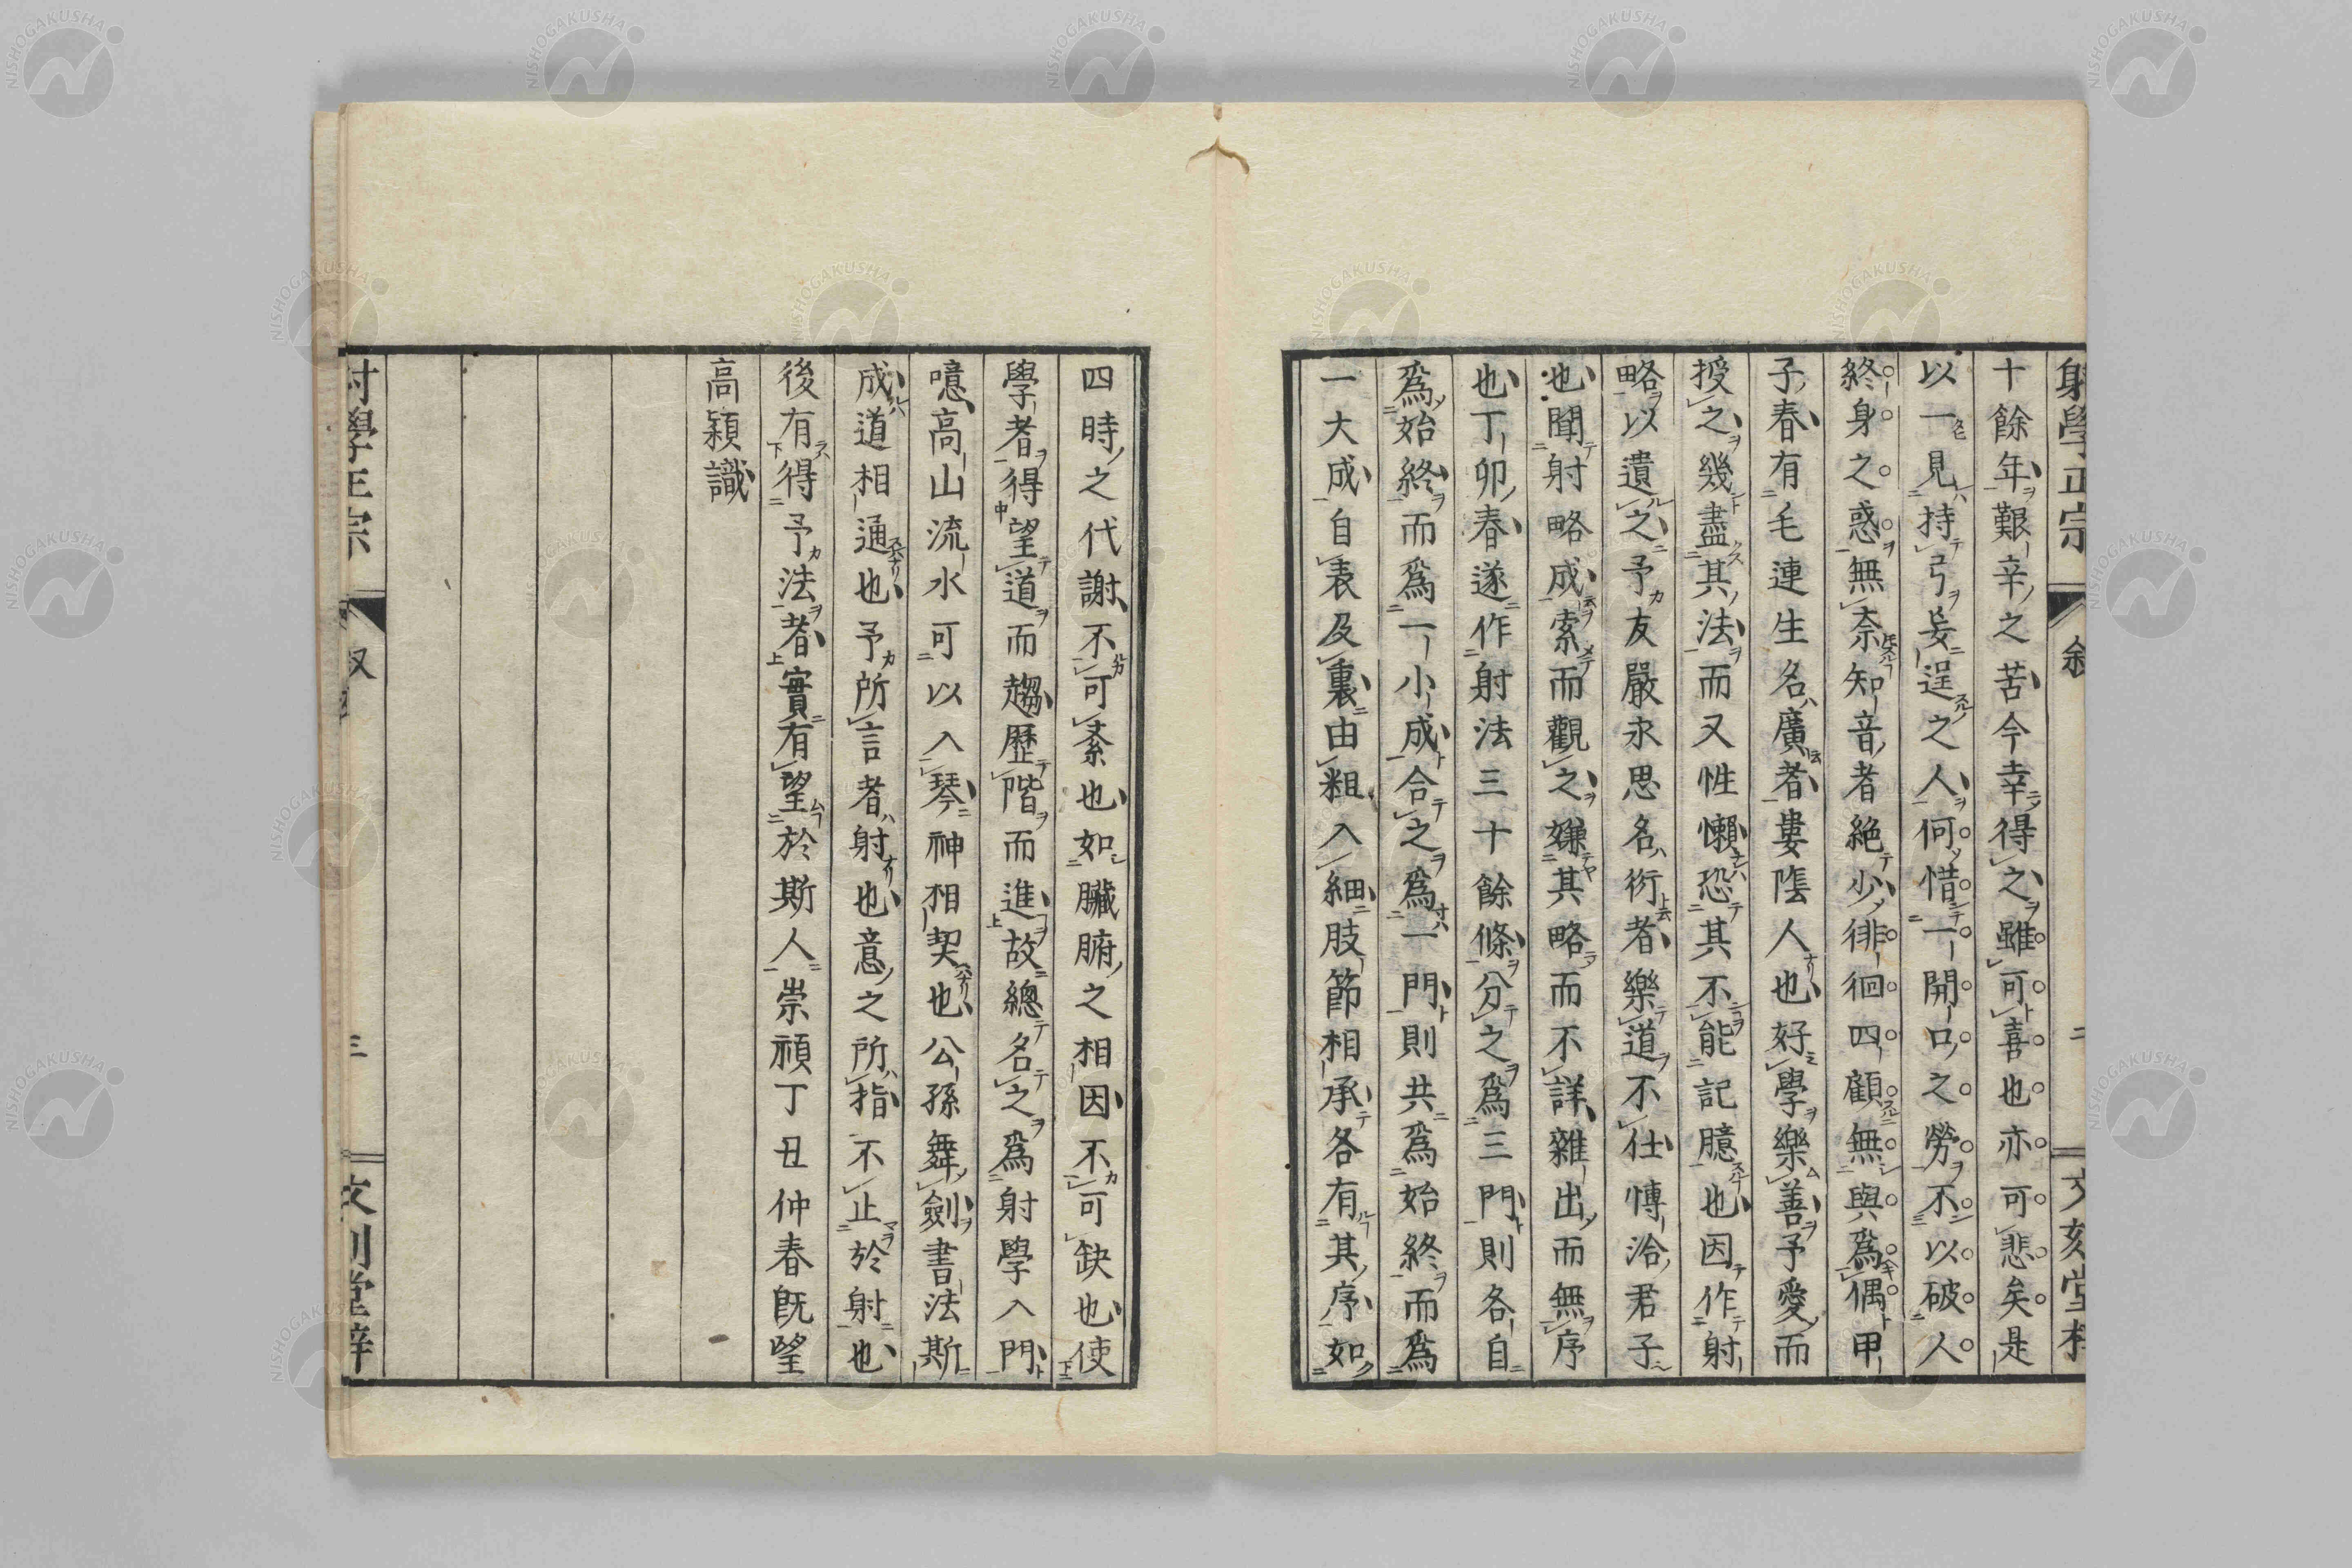 射學正宗 叙 二
十餘年艱辛之苦今幸得之雖可喜也亦可悲矣是
以一見持弓妄逞之人何惜一開口之勞不以破人
終身之惑無奈知音者絶少徘徊四顧無與爲偶甲
子春有毛連生名廣者婁陰人也好學樂善予愛而
授之幾盡其法而又性懶恐其不能記臆也因作射
略以遺之予友嚴永思名衍者樂道不仕愽洽君子
也聞射略成索而觀之嫌其略而不詳雜出而無序
也丁卯春遂作射法三十餘條分之爲三門則各自
爲始終而爲一小成合之爲一門則共爲始終而爲
一大成自表及裏由粗入細肢節相承各有其序如
四時之代謝不可紊也如臟腑之相因不可缺也使
學者得望道而趨歷階而進故總名之爲射學入門
噫高山流水可以入琴神相契也公孫舞劍書法斯
成道相通也予所言者射也意之所指不止於射也
後有得予法者實有望於斯人崇禎丁丑仲春旣望
高穎識
射學正宗 叙 三
NISHOGAKUSHA